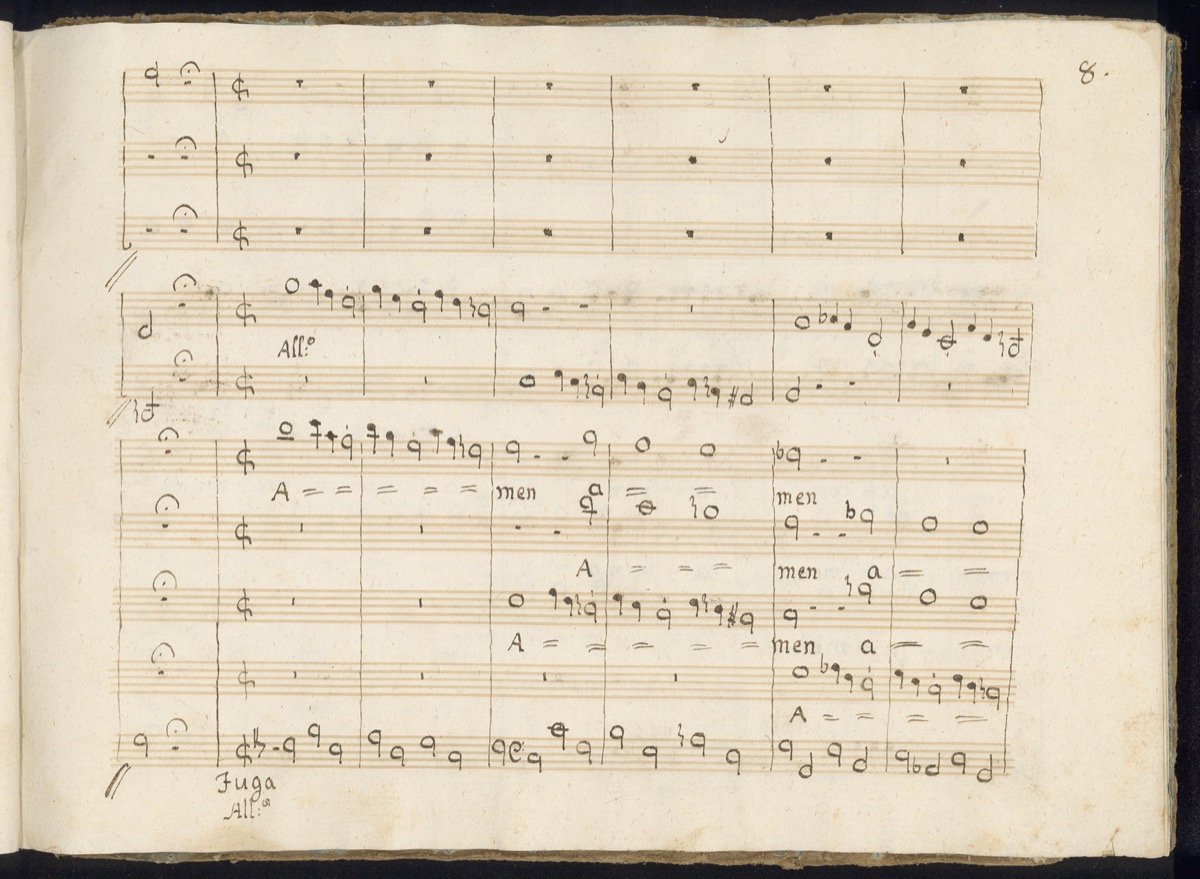 8.
All:o
A = = = = = men a = =
men
A = = = men a = =
A = = = = = men a = =
A = = = =
Fuga
All:o